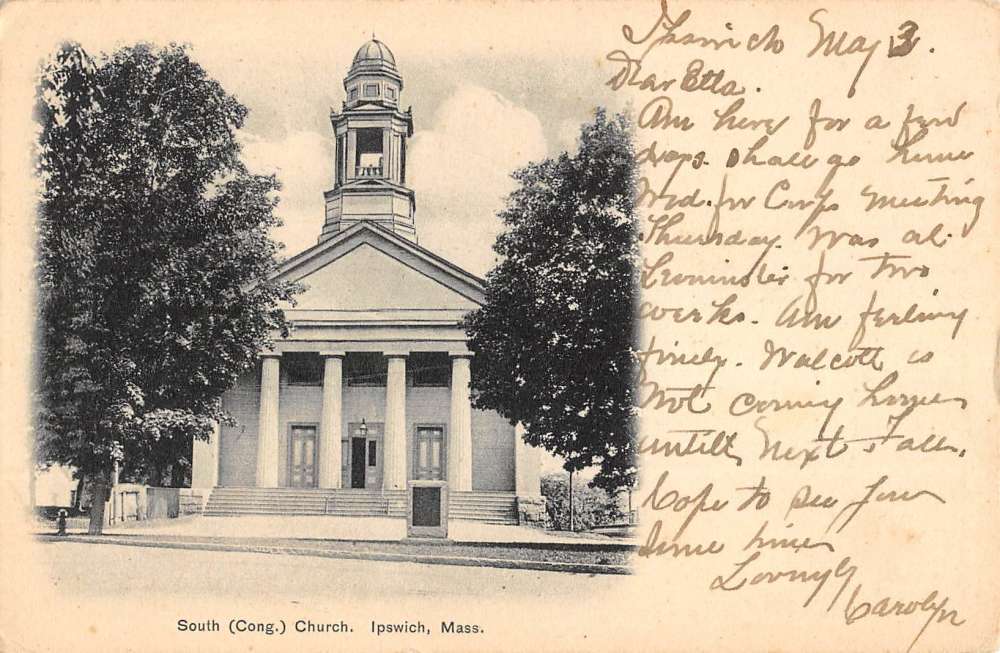 Ipswich May 3.
Dear Etta.
Am here for a few
days. shall go home
Wed. for Corps meeting
Thursday. Was at
Leominster for two
weeks. Am feeling
finely. Walcott is
Not coming home
untill Next Fall.
hope to see you
some time
Lovingly
Carolyn
South (Cong.) Church. Ipswich, Mass.